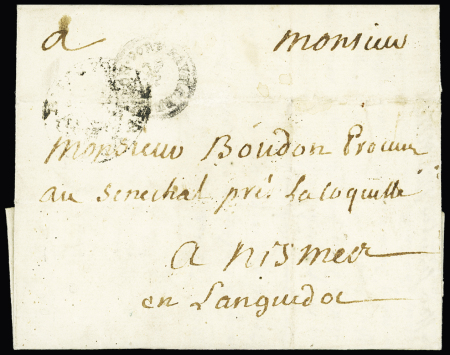 a Monsieur
Monsieur Boudon Procur
au Senechal prés La coquille
a nismes
en Languedoc